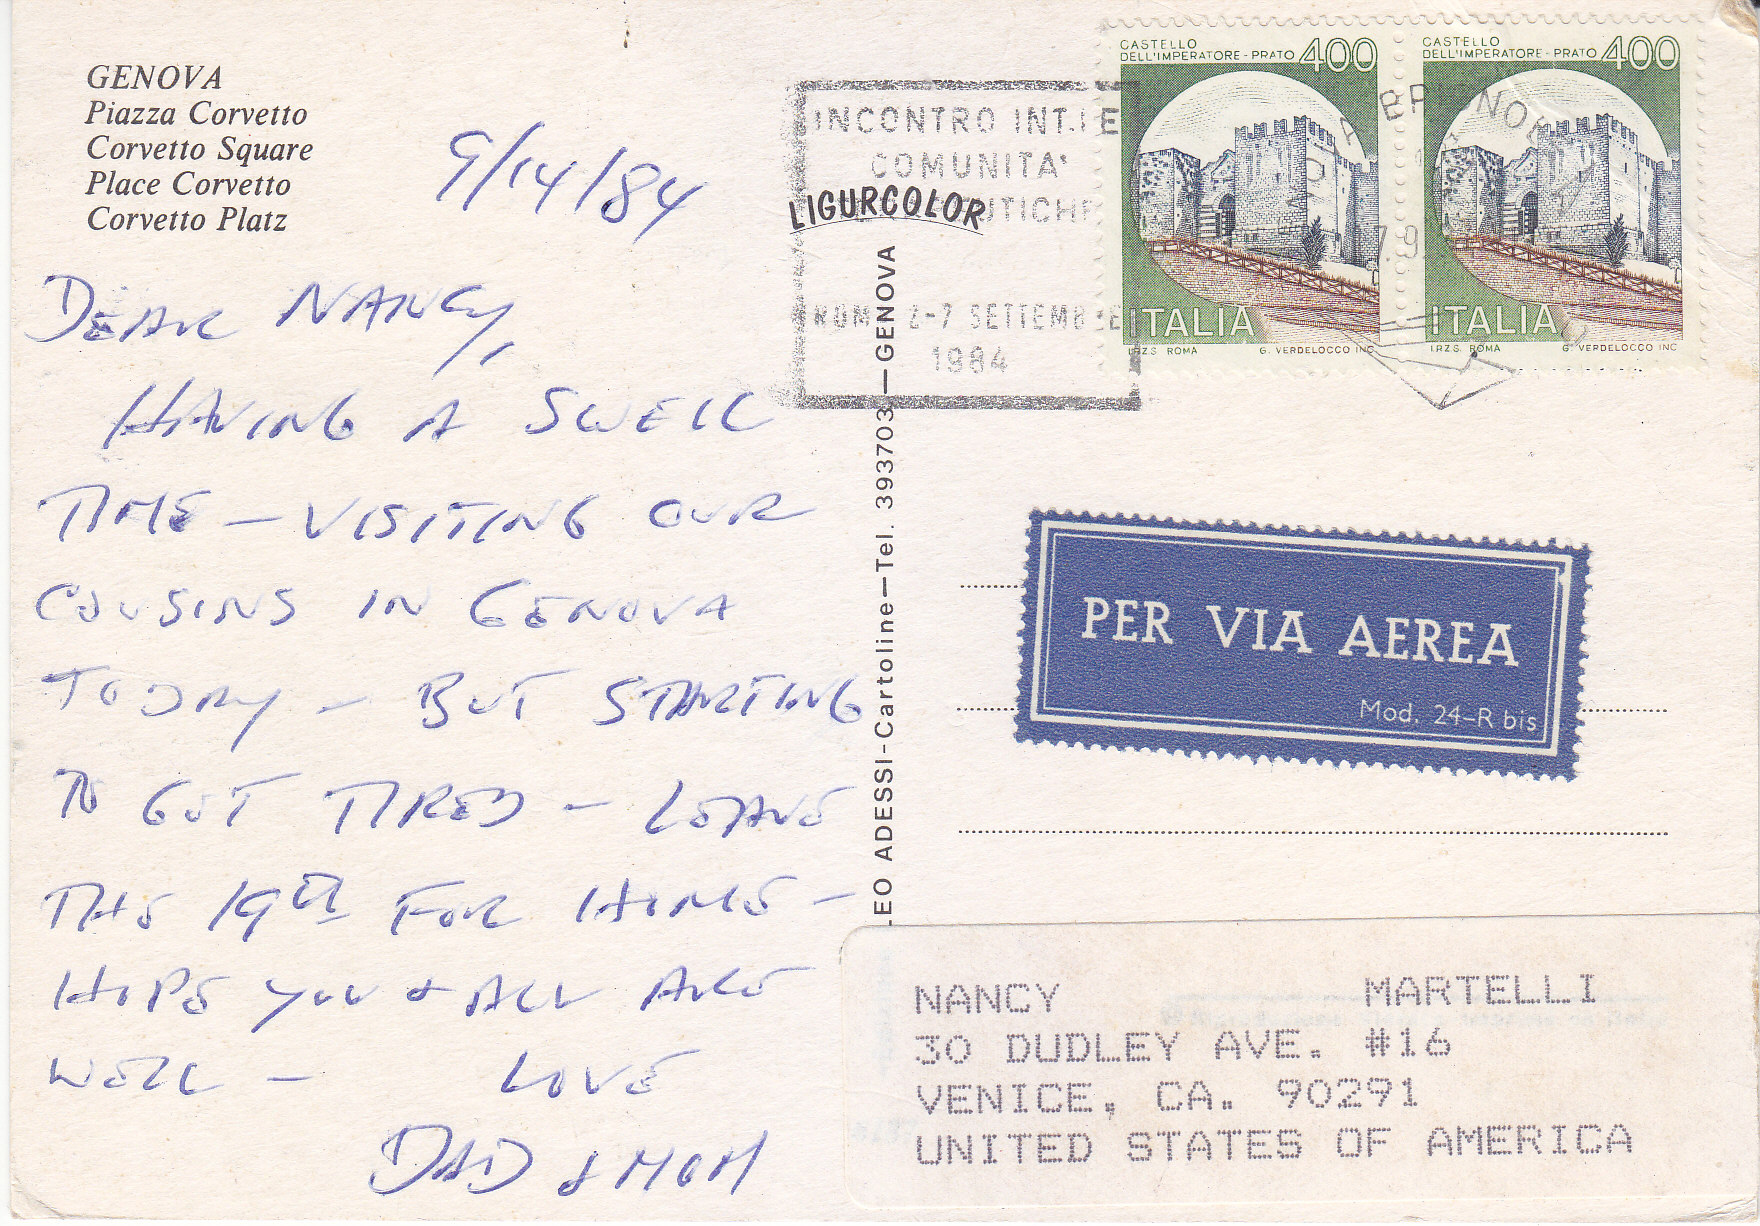 GENOVA
Piazza Corvetto
Corvetto Square
Place Corvetto
Corvetto Platz
9/14/84
DEAR NANCY,
HAVING A SWELL
TIME - VISITING OUR
COUSINS IN GENOVA
TODAY - BUT STARTING
TO GET TIRED - LEAVE
THE 19TH FOR HOME -
HOPE YOU & ALL ARE
WELL - LOVE
DAD & MOM
INCONTRO INT.LE
COMUNITA'
1984
2-7 SETTEMBRE
LIGURCOLOR
LEO ADESSI-Cartoline-Tel. 393703-GENOVA
CASTELLO
DELL'IMPERATORE - PRATO 400
ITALIA
I.P.Z.S. ROMA G. VERDELOCCO INC.
CASTELLO
DELL'IMPERATORE - PRATO 400
ITALIA
I.P.Z.S. ROMA G. VERDELOCCO INC
PER VIA AEREA
Mod. 24-R bis
NANCY MARTELLI
30 DUDLEY AVE. #16
VENICE, CA. 90291
UNITED STATES OF AMERICA